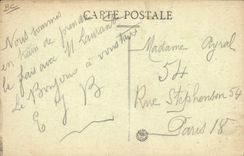 CARTE POSTALE
Nous sommes
en train de prendre
le frais avec Mr Laurand
Le Bonjour à vous tous
E J B
Madame Ayral
54
Rue Stephenson 54
Paris 18e